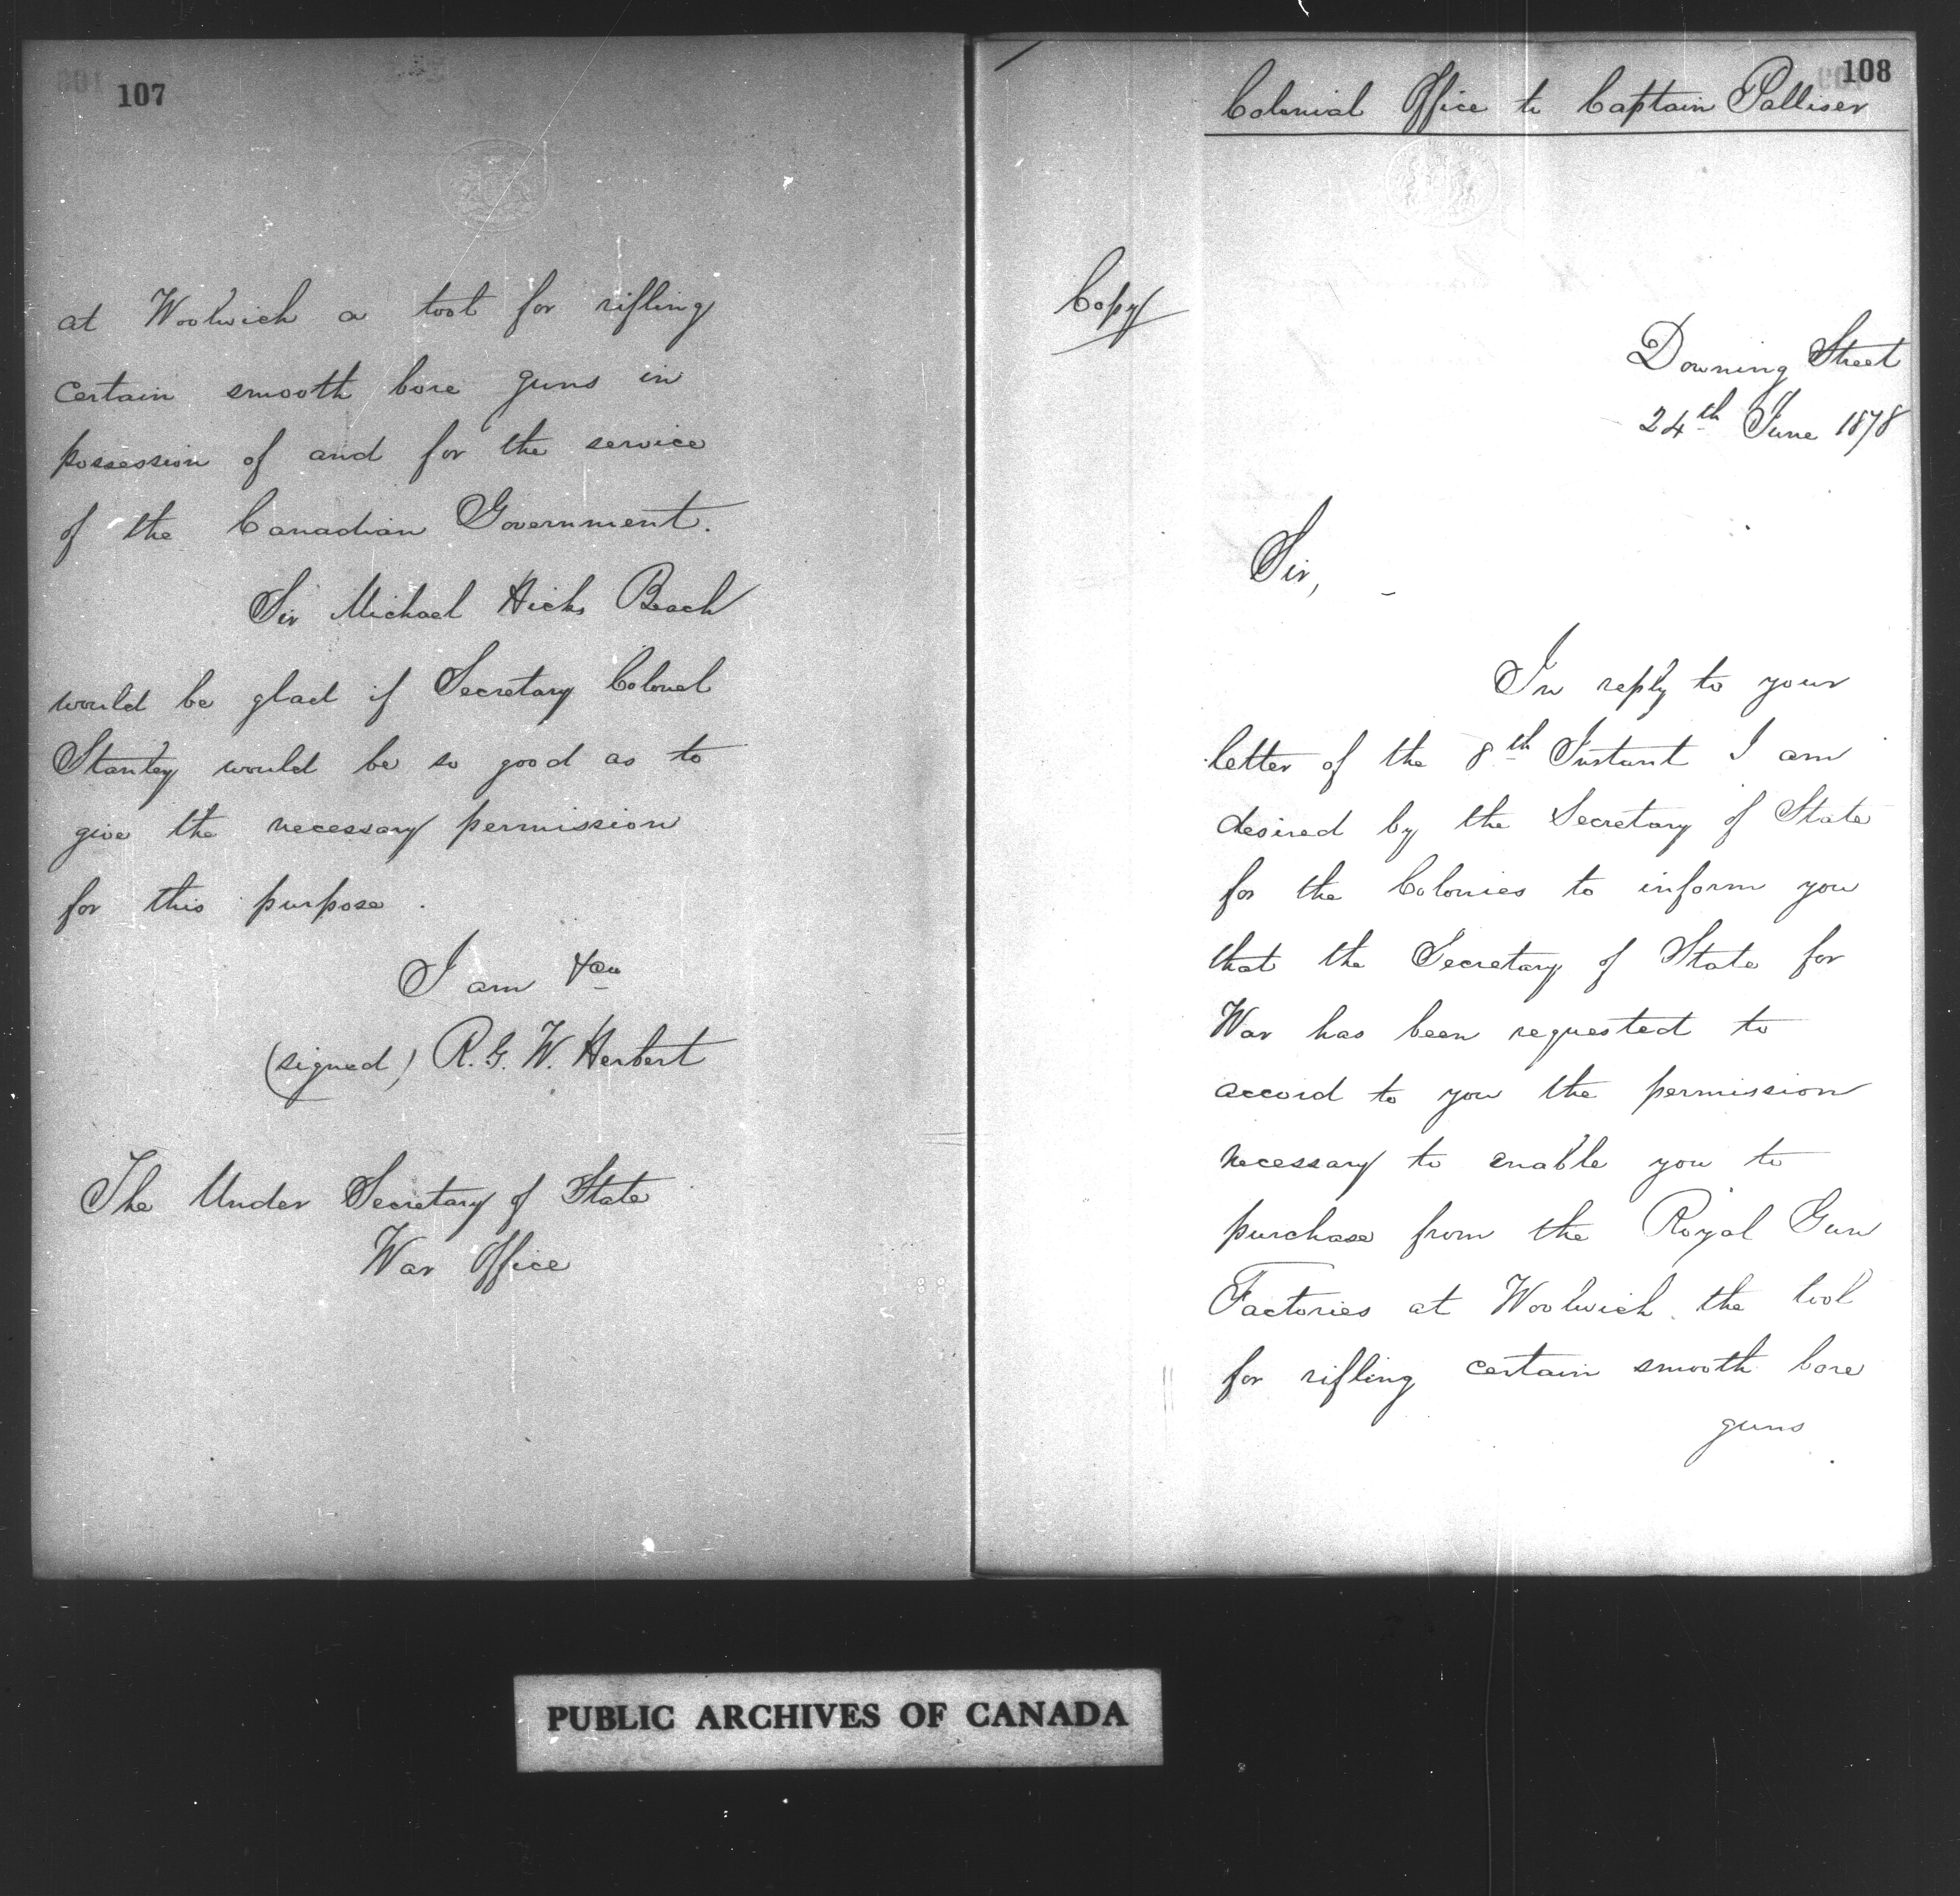 107
at Woolwich a tool for rifling
certain smooth bore guns in
possession of and for the service
of the Canadian Government.
Sir Michael Hicks Beach
would be glad if Secretary Colonel
Stanley would be so good as to
give the necessary permission
for this purpose.
I am &ca
(signed) R. G. W. Herbert
The Under Secretary of State
War Office
108
Colonial Office to Captain Palliser
Copy
Downing Street
24th June 1878
Sir,
In reply to your
letter of the 8th Instant I am
desired by the Secretary of State
for the Colonies to inform you
that the Secretary of State for
War has been requested to
accord to you the permission
necessary to enable you to
purchase from the Royal Gun
Factories at Woolwich the tool
for rifling certain smooth bore
guns
PUBLIC ARCHIVES OF CANADA